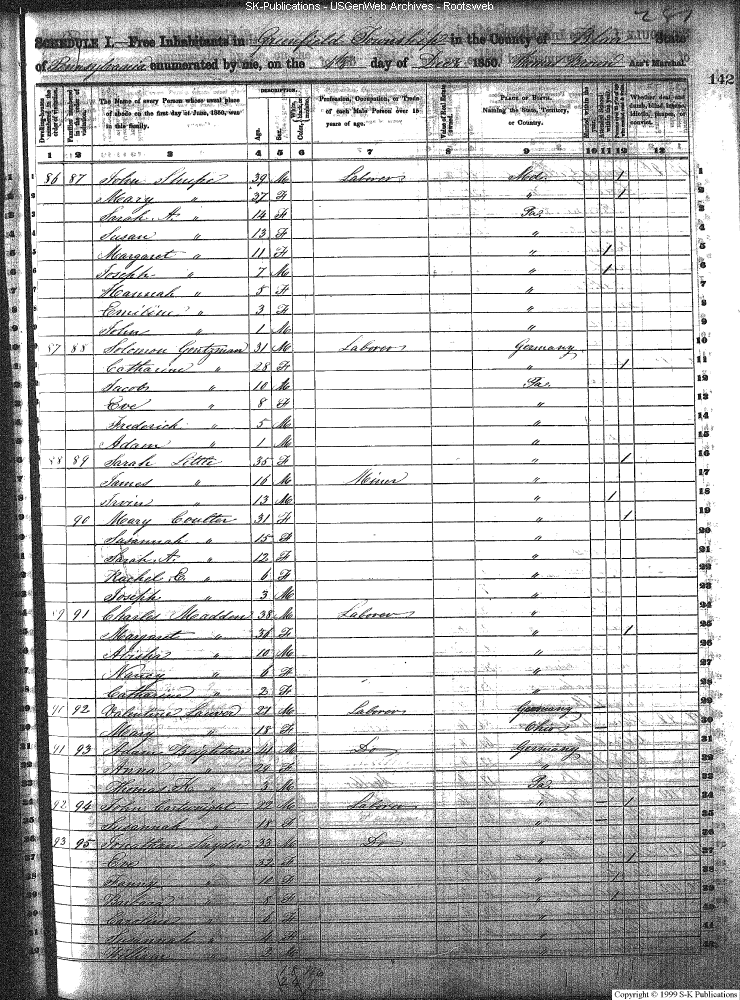 SK-Publications - USGenWeb Archives - Rootsweb
287
SCHEDULE I.—Free Inhabitants in Greenfield Township in the County of Blair State
of Pennsylvania enumerated by me, on the day of Decr 1850. Ass't Marshal.
142
Dwelling-houses numbered in the order of visitation.
The Name of every Person whose usual place of abode on the first day of June, 1850, was in this family.
DESCRIPTION.
Age. Sex. Color,
Profession, Occupation, or Trade of each Male Person over 15 years of age.
Value of Real Estate owned.
PLACE OF BIRTH. Naming the State, Territory, or Country.
Whether deaf and dumb, blind, insane, idiotic, pauper, or convict.
1 2 3 4 5 6 7 8 9 10 11 12 13
86 87 John Shupe 39 M Laborer Md. /
Mary " 37 F " /
Sarah A. " 14 F Pa.
Susan " 13 F "
Margaret " 11 F " /
Joseph " 7 M " /
Hannah " 5 F "
Emiline " 3 F "
John " 1 M "
87 88 Solomon Gentzman 31 M Laborer Germany
Catharine " 28 F " /
Jacob " 10 M Pa.
Eve " 8 F "
Frederick " 5 M "
Adam " 1 M "
88 89 Sarah Little 35 F " /
James " 16 M Miner "
Irvin " 13 M " /
90 Mary Coulter 31 F " /
Susannah " 15 F "
Sarah A. " 12 F "
Rachel E. " 6 F "
Joseph " 3 M "
89 91 Charles Madden 38 M Laborer "
Margaret " 36 F " /
Abisha " 10 M "
Nancy " 6 F "
Catharine " 2 F "
91 92 Valentine 27 M Laborer Germany
Mary " 18 F Ohio
91 93 Adam 41 M Do Germany
Anna " F "
Thomas K. " 3 M Pa.
92 94 John Cartwright M Laborer " /
Susannah " 18 F "
93 95 Jonathan Snyder 33 M Do "
Eve " 32 F " /
Fanny " 10 F " /
Barbara " 8 F " /
Caroline " 6 F "
Susannah " 4 F "
William " 2 M "
Copyright © 1999 S-K Publications